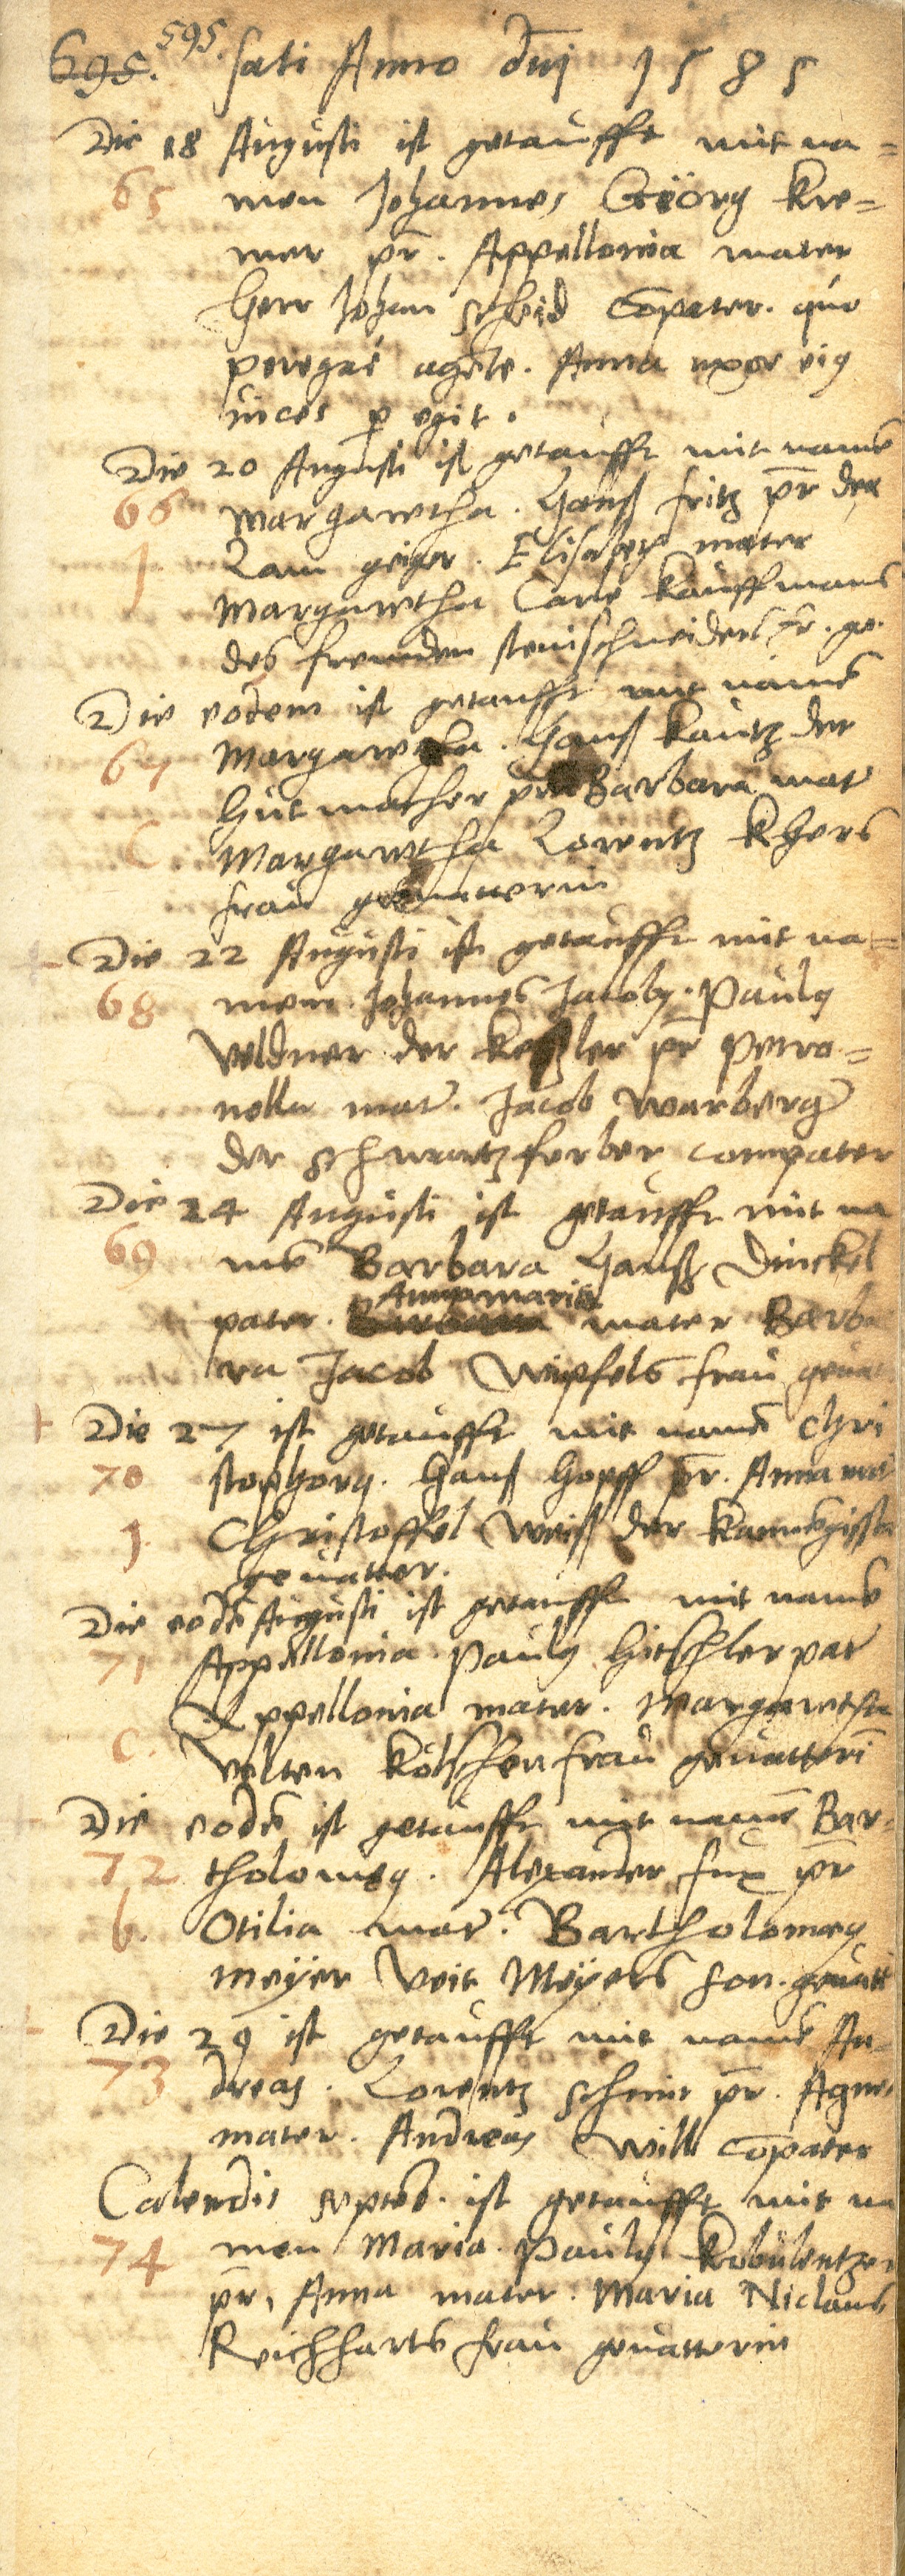 695. 595. sati Anno dnj 1585
Die 18 Augusti ist getaufft mit na=
65 men Johannes Geörg kre=
mer pr. Appellonia mater
Herr Johan scheid Copater. quo
peregre agete. Anna uxor eiq
uices p egit.
Die 20 Augusti ist getaufft mit name
66 Margaretha. Hanß fritz pr der
1 Lam geiger. Elisabeth mater
Margaretha Carle kauffmans
des fremden steinschneiders fr. ge.
Die eodem ist getaufft mit name
67 Margaretha. Hanß kautz der
Hutmacher pr Barbara mat
C Margaretha Lorentz khers
frau geuatterin
Die 22 Augusti ist getaufft mit na=
68 men Johannes Jacoby. Pauly
Veldner der keßler pr Petro=
nella mat. Jacob Warberg
der schwartzferber compater
Die 24 Augusti ist getaufft mit na
69 me Barbara Hanß Dinckel
Annamaria
pater. mater Barba
ra Jacob Wipfels frau geuat
Die 27 ist getaufft mit name Chri
70 stophorq. Hanß Hopff pr. Anna mat
1. Christoffel Weiß der kannegisser
geuatter.
Die eode Augusti ist getaufft mit name
71 Appellonia Pauly Hitschler pat
Appellonia mater. Margaretha
C. Velten kölschen frau geuatteri
Die eode ist getaufft mit name Bar=
72 tholomeq. Alexander fux pr
b. Otilia mat. Bartholomeq
Meÿer Veit Meÿers son. geuatt
Die 29 ist getaufft mit name An=
73 dreas. Lorentz schmit pr. Agnes
mater. Andreas Will copater
Calendis septeb. ist getaufft mit na
74 men Maria. Pauly kobülentzer
pr, Anna mater. Maria Niclaus
Reichharts frau geuatterin